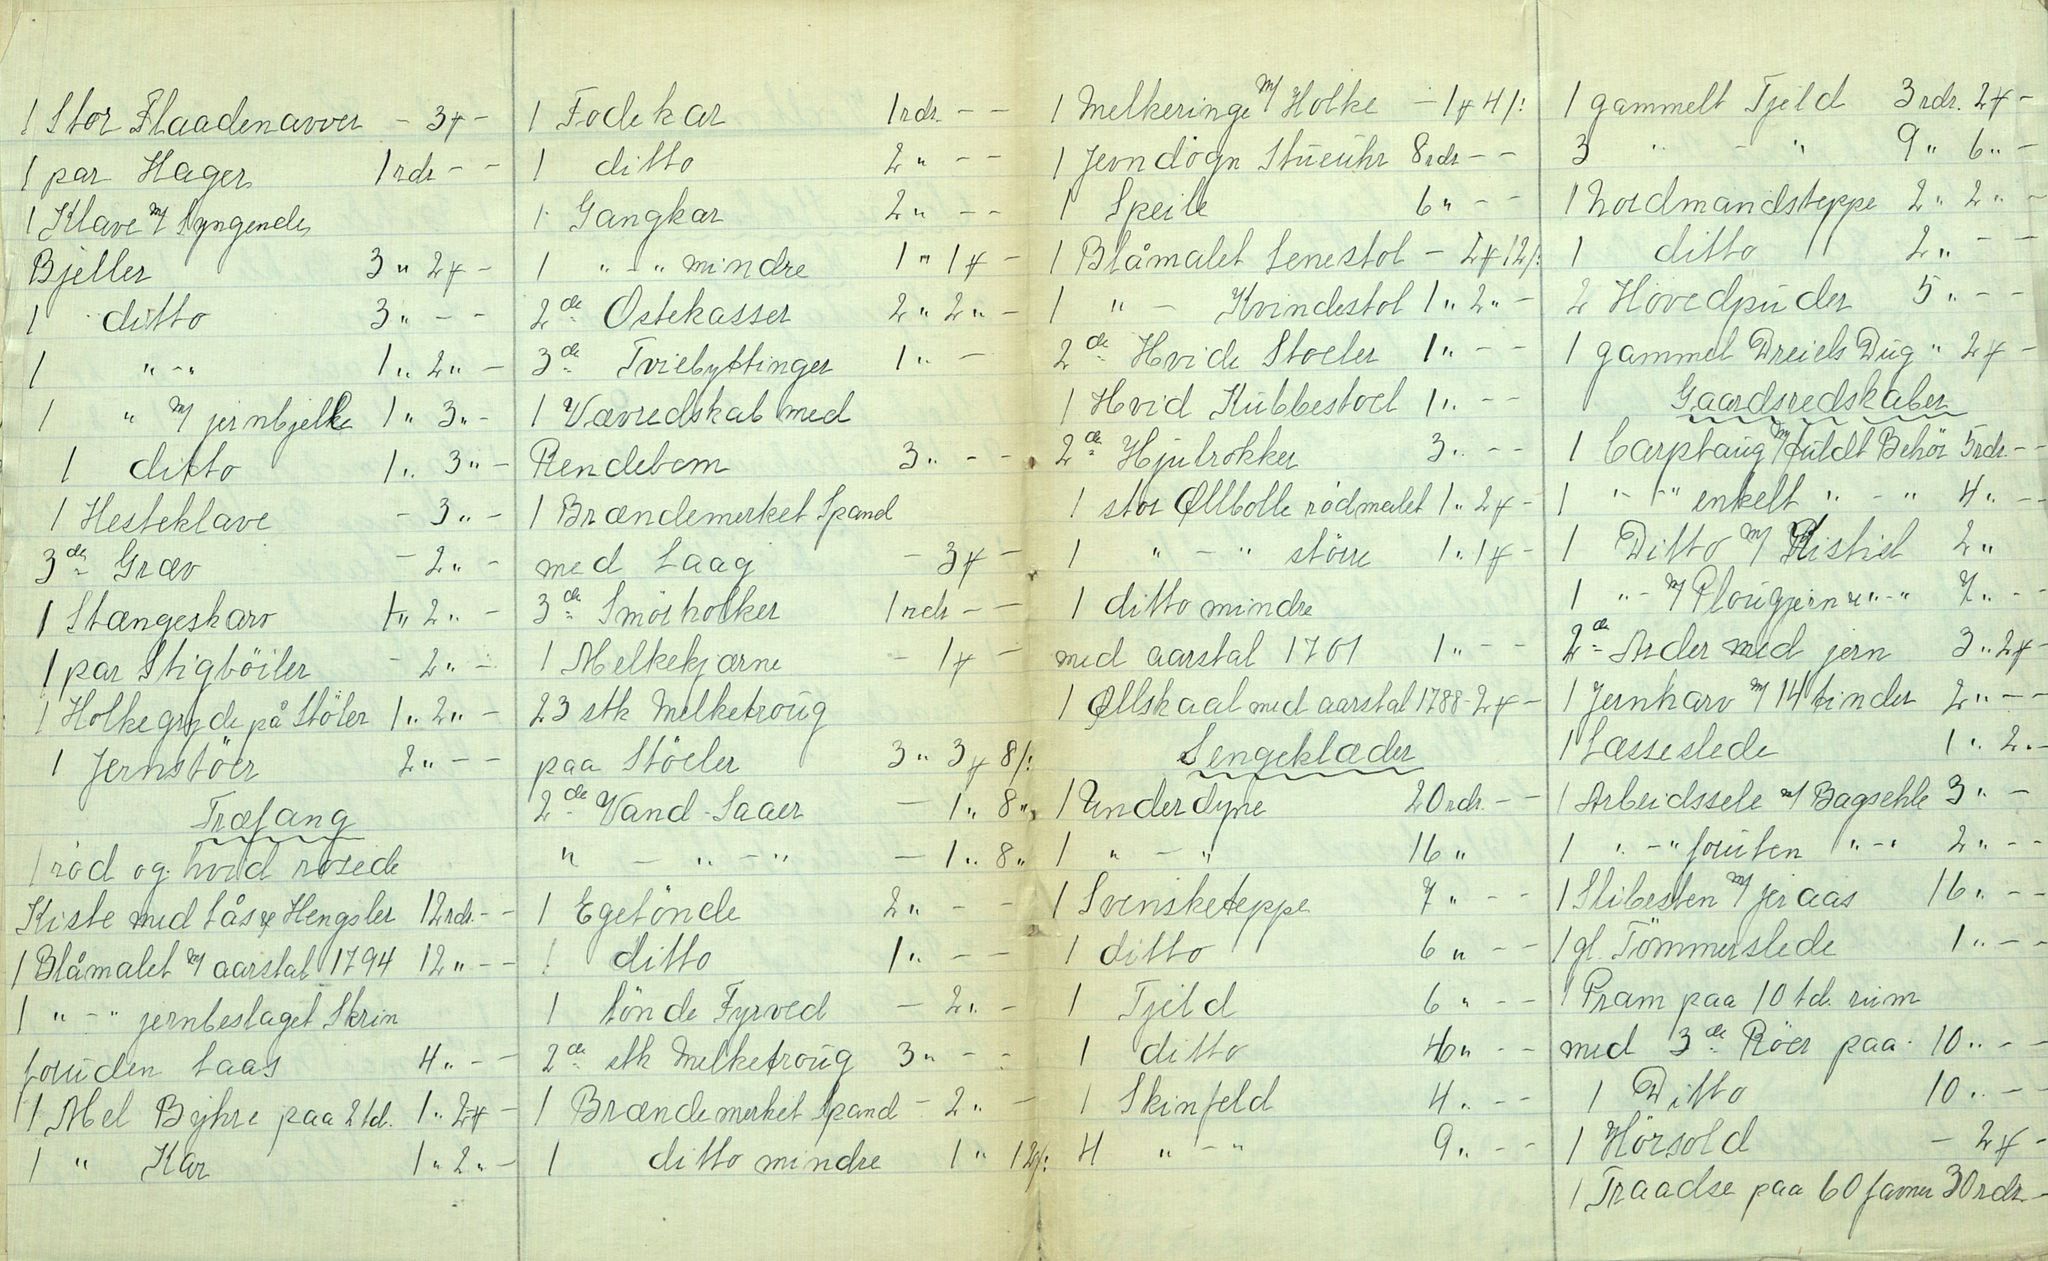 1 Stor Flaadenavver - 3 ƒ -
1 par Hager 1 rdr - -
1 Klave m/ Syngende
Bjeller 3 " 2 ƒ -
1 ditto 3 " - -
1 " - " 1 " 2 " -
1 " m/ jernbjelke 1 " 3 " -
1 ditto 1 " 3 " -
1 Hesteklave - 3 " -
3de Græv - 2 " -
1 Stængeskarv 1 " 2 " -
1 par Stigböiler - 2 " -
1 Holkegryde på Stöler 1 " 2 " -
1 Jernstöer 2 " - -
Træfang
1 röd og hvid rosede
Kiste med Lås & Hengsler 12 rdr. - -
1 Blåmalet m/ aarstal 1794 12 " - -
1 " - " jernbeslaget Skrin
foruden Laas 4 " - -
1 Mel Byhre paa 2 td. 1 " 2 ƒ -
1 " Kar 1 " 2 " -
1 Fodekar 1 rdr. - -
1 ditto 2 " - -
1 Gangkar 2 " - -
1 " - " mindre 1 " 1 ƒ -
2de Ostekasser 2 " 2 " -
3de Tviebyttinger 1 " -
1 Vævredskab med
Rendebom 3 " - -
1 Brændemerket Spand
med Laag - 3 ƒ -
3de Smörholker 1 rdr - -
1 Melkekjærne - 1 ƒ -
23 stk Melketroug
paa Stöeler 3 " 3 ƒ 8 /:
2de Vand-Saaer - 1 " 8 "
" - " - " - 1 " 8 "
1 Egetönde 2 " - -
1 ditto 1 " - -
1 tönde Fyrved - 2 " -
2de stk Melketroug 3 " - -
1 Brændemerket Spand - 2 " -
1 ditto mindre 1 " 12 /:
1 Melkeringe m/ Holke - 1 ƒ 4 /:
1 Jevndögn Stueuhr 8 rdr - -
1 Speile 6 " - -
1 Blåmalet Lenestol - 2 ƒ 12 /:
1 " - Kvindestol 1 " 2 " -
2de Hvide Stoeler 1 " - -
1 Hvid Kubbestoel 1 " - -
2de Hjulrokker 3 " - -
1 stor Ølbolle rödmalet 1 " 2 ƒ -
1 " - " större 1 " 1 ƒ -
1 ditto mindre
med aarstal 1701 1 " - -
1 Øllskaal med aarstal 1788 - 2 ƒ -
Sengeklæder
1 Underdyne 20 rdr. - -
1 " - " 16 "
1 Svensketeppe 7 " - -
1 ditto 6 " - -
1 Tjeld 6 " - -
1 ditto 4 " - -
1 Skinfeld 4 " - -
4 " - " 9 " - -
1 gammelt Tjeld 3 rdr. 2 ƒ -
3 " - " 9 " 6 " -
1 Nordmandsteppe 2 " 2 " -
1 ditto 2 " - -
2 Hovedpuder 5 " - -
1 gammel Dreiels Dug " 2 ƒ -
Gaardsredskaber
1 Carptaug m/ fuldt Behör 5 rdr. - -
1 " - " enkelt " - " 4 " - -
1 Ditto m/ Ristiel 2 "
1 " - m/ Plougjern " - " 7 " - -
2de Arder med jern 3 " 2 ƒ -
1 Jernharv m/ 14 tinder 2 " - -
1 Læsseslede 1 " 2 " -
1 Arbeidssele m/ Bagsehle 3 " -
1 " - " foruten " - " 2 " - -
1 Slibesten m/ jernaas 16 " - -
1 gl. Tömmerslede 1 " - -
1 Pram paa 10 td. rum
med 3de Röer paa 10 " - -
1 Ditto 10 " - -
1 Hörsold - 2 ƒ -
1 Traadse paa 60 favner 30 rdr -